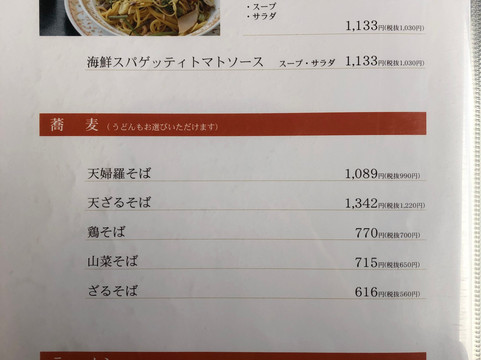 ・スープ
・サラダ
1,133円(税抜1,030円)
海鮮スパゲッティトマトソース スープ・サラダ 1,133円(税抜1,030円)
蕎 麦（うどんもお選びいただけます）
天婦羅そば 1,089円(税抜990円)
天ざるそば 1,342円(税抜1,220円)
鶏そば 770円(税抜700円)
山菜そば 715円(税抜650円)
ざるそば 616円(税抜560円)